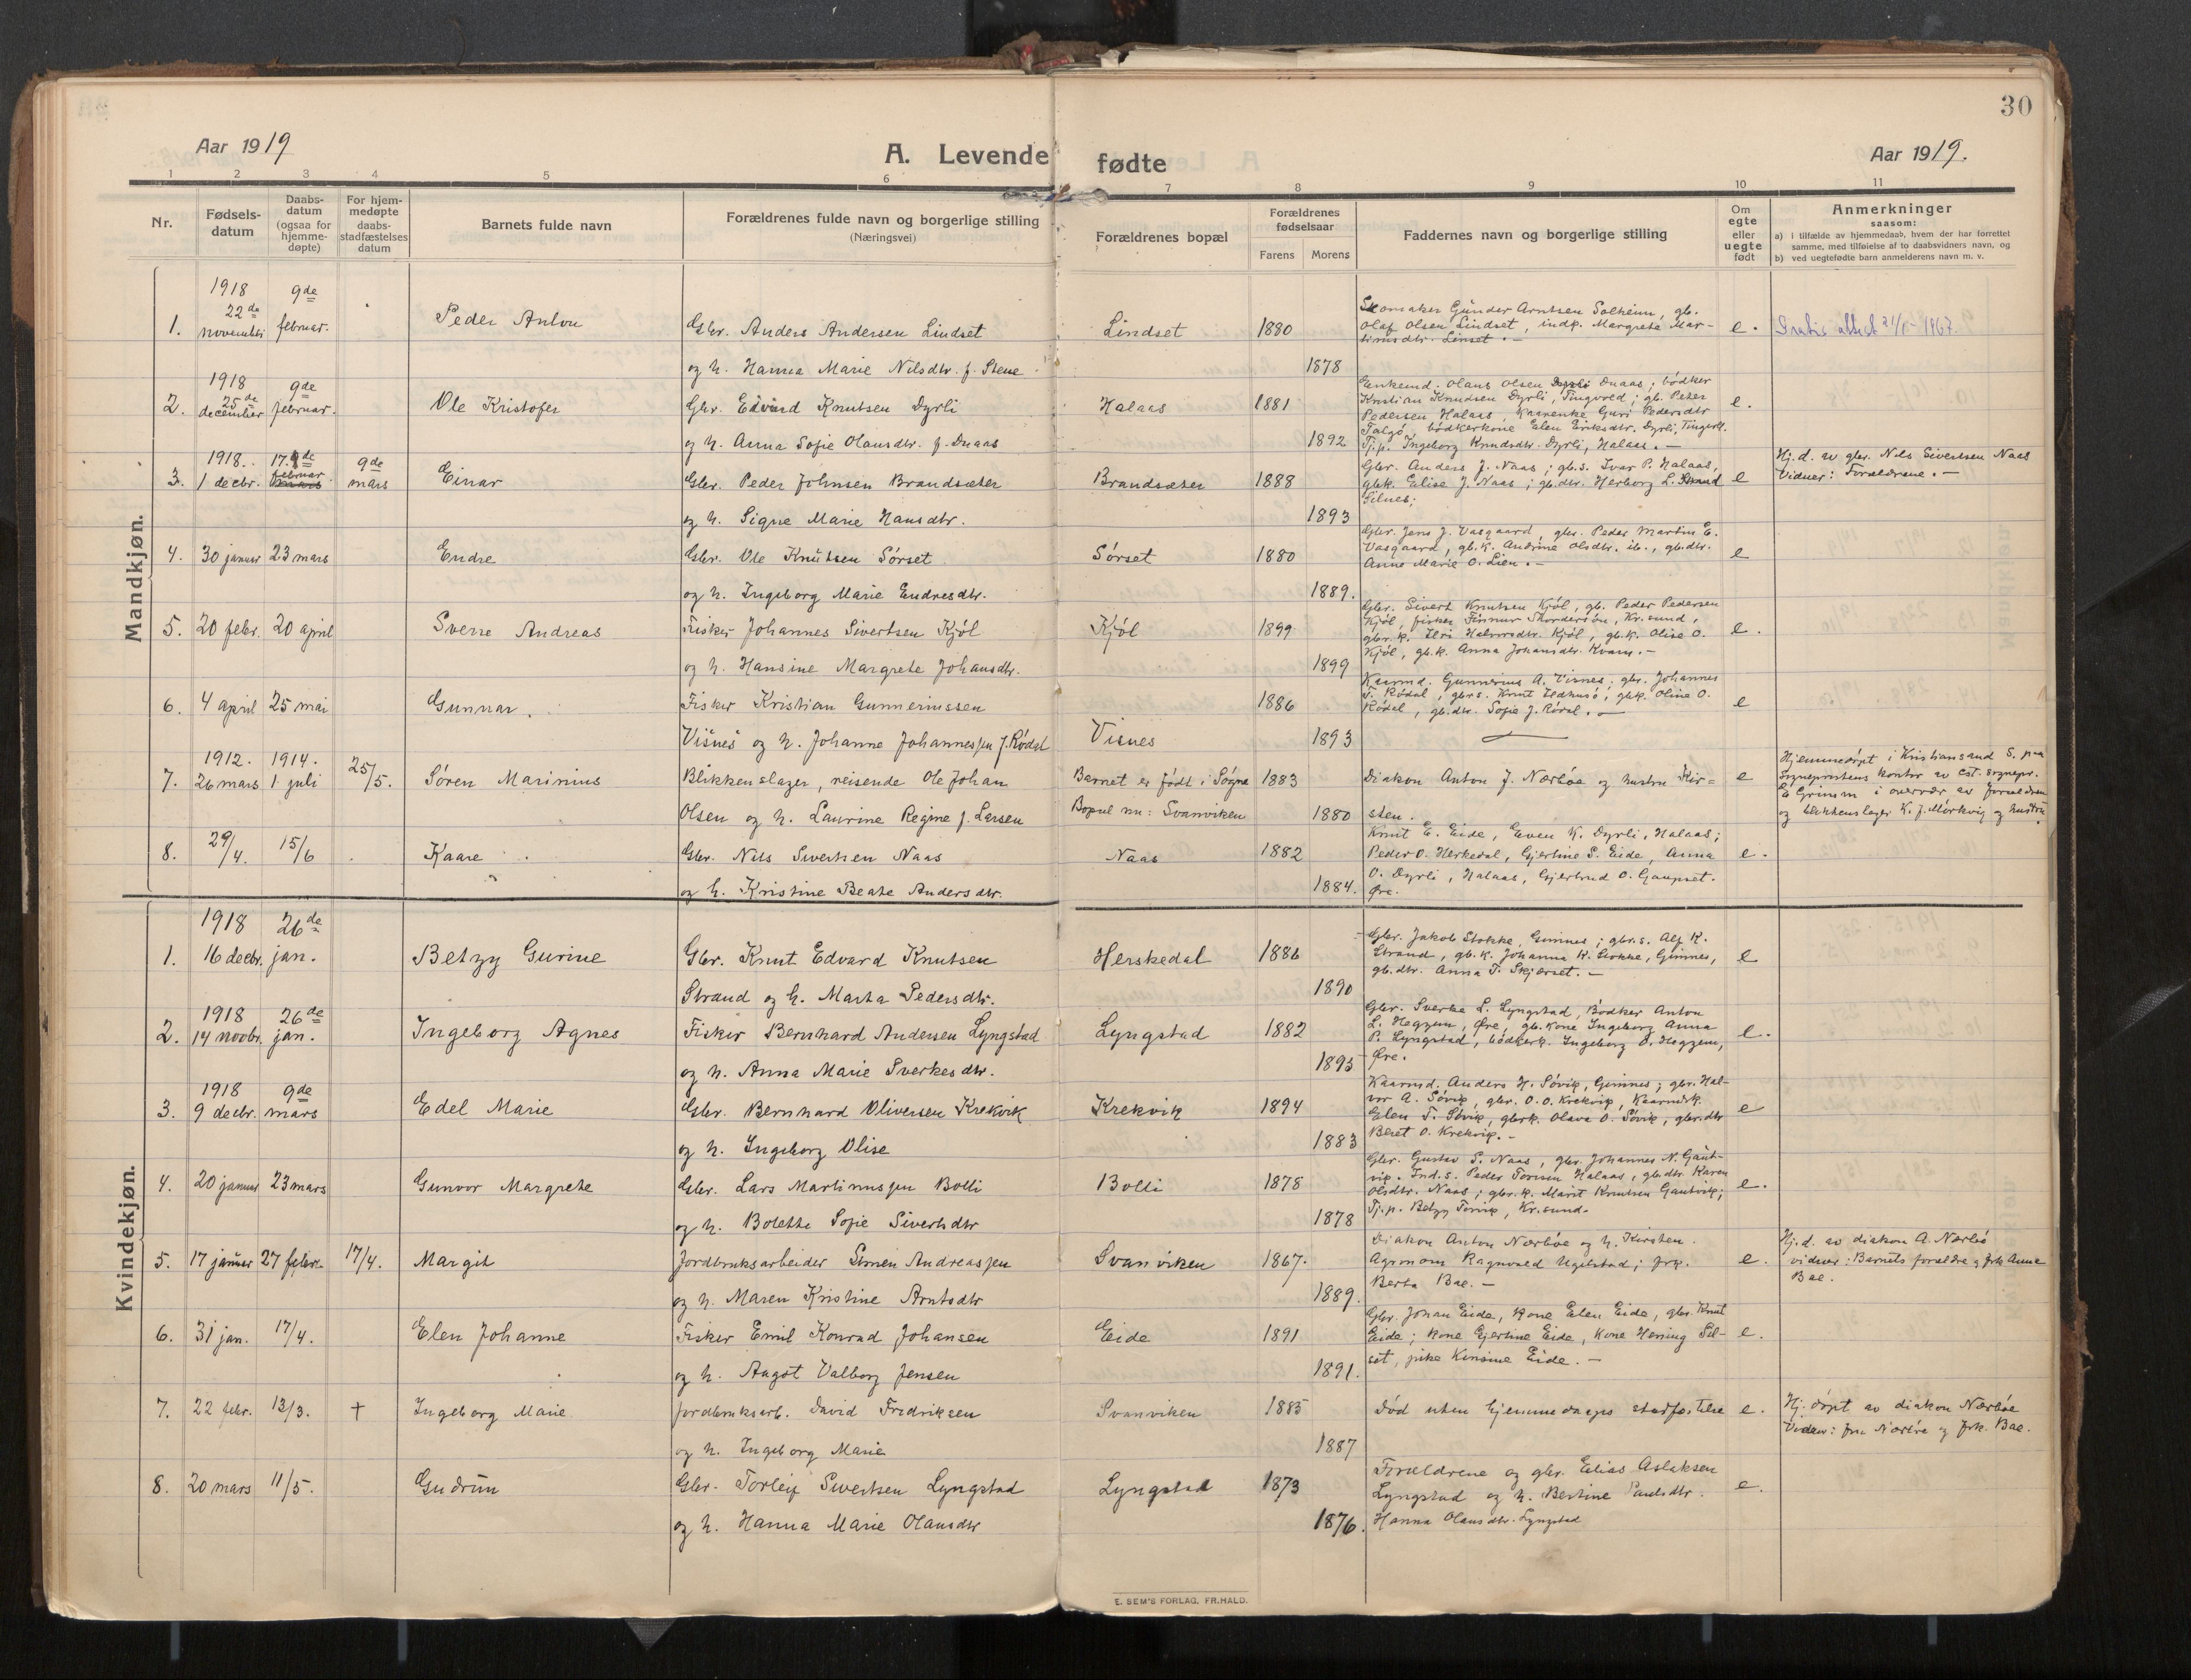 30
Aar 1919
A. Levende fødte
Aar 1919.
1 2 3 4 5 6 7 8 9 10 11
Nr.
Fødsels-
datum
Daabs-
datum
(ogsaa for
hjemme-
døpte)
For hjem-
medøpte
daabs-
stadfæstelses
datum
Barnets fulde navn
Forældrenes fulde navn og borgerlige stilling
(Næringsvei)
Forældrenes bopæl
Forældrenes
fødselsaar
Farens Morens
Faddernes navn og borgerlige stilling
Om
egte
eller
uegte
født
Anmerkninger
saasom:
a) i tilfælde av hjemmedaab, hvem der har forrettet
samme, med tilføielse af to daabsvidners navn, og
b) ved uegtefødte barn anmelderens navn m. v.
Mandkjøn.
1.
1918
22de
november
9de
februar.
Peder Anton
Gbr. Anders Andersen Lindset
og h. Hanna Marie Nilsdtr. f. Stene
Lindset
1880
1878
Skomaker Gunder Arntsen Solheim, gb.
Olaf Olsen Lindset, indp. Margrete Mar-
tinusdtr. Linset. -
e.
Gratis attest 21/1-1967
2.
1918
25de
december
9de
februar.
Ole Kristofer
Gbr. Edvard Knutsen Dyrli
og h. Anna Sofie Olausdtr. f. Duaas
Halaas
1881
1892
Enkemd. Olaus Olsen Duaas; bødker
Kristian Knudsen Dyrli, Tingvold; gb. Peter
Pedersen Halaas, Kaarenke Guri Pedersdtr
Talgø, bødkerkone Elen Eriksdtr. Dyrli, Tingvoll.
Tj.p. Ingeborg Knudsdtr. Dyrli, Halaas. -
e.
3.
1918.
1 decbr.
17.de
februar
9de
mars
Einar
Gbr. Peder Johnsen Brandsæter
og h. Signe Marie Hansdtr.
Brandsæter
1888
1893
Gbr. Anders J. Naas; gb.s. Ivar P. Halaas,
gbk. Elise J. Naas; gb.dtr. Herborg L. Strand
Silnes;
e
Hj.d. av gbr. Nils Sivertsen Naas
Vidner: Forældrene. -
4.
30 januar
23 mars
Endre
Gbr. Ole Knutsen Sørset
og h. Ingeborg Marie Endresdtr.
Sørset
1880
1889.
Gbr. Jens J. Vasgaard, gbr. Peder Martin E.
Vasgaard, gb.k. Andrine Olsdtr. ib., gb.dtr.
Anne Marie O. Lien. -
e
5.
20 febr.
20 april
Sverre Andreas
Fisker Johannes Sivertsen Kjøl
og h. Hansine Margrete Johansdtr.
Kjøl
1899
1899
Gbr. Sivert Knutsen Kjøl, gb. Peder Pedersen
Kjøl, fisker Finnur Thordersøn, Kr.sund,
gbr.k. Ildri Halvorsdtr. Kjøl, gb.k. Olise O.
Kjøl, gb.k. Anna Johansdtr. Kvam. -
e.
6.
4 april
25 mai
Gunnar.
Fisker Kristian Gunneriussen
Visnes og h. Johanne Johannessen f. Rødal
Visnes
1886
1893
Kaarmd. Gunnerius A. Visnes; gbr. Johannes
T. Rødal, gbr.s. Knut Iedhusø, gb.k. Oline O.
Rødal, gb.dtr. Sofie J. Rødal. -
e
7.
1912.
26 mars
1914.
1 juli
25/5.
Søren Marinius
Blikkenslager, reisende Ole Johan
Olsen og h. Laurine Regine f. Larsen
Barnet er født i Søgne
Bopæl nu: Svanviken
1883
1880
Diakon Anton J. Nærbøe og hustru Kir=
sten.
e
Hjemmedøpt i Kristiansand S. paa
sogneprestens kontor av cst. sognepr.
E Grimm i overvær av forældren
og blikkenslager K. J. Mørkvig og hustru.
8.
29/4.
15/6
Kaare
Gbr. Nils Sivertsen Naas
og h. Kristine Beate Andersdtr.
Naas
1882
1884.
Knut E. Eide, Even K. Dyrli, Halaas;
Peder O. Herkedal, Gjertine S. Eide, Anna
O. Dyrli, Halaas, Gjertrud O. Gaupset.
Øre.
e.
Kvindekjøn.
1.
1918
16 decbr.
26de
jan.
Betzy Gurine
Gbr. Knut Edvard Knutsen
Strand og h. Marta Pedersdtr.
Herskedal
1886
1890
Gbr. Jakob Stokke, Gimnes; gbr.s. Alf K.
Strand, gb.k. Johanna K. Stokke, Gimnes,
gb.dtr. Anna T. Skjørset. -
e
2.
1918
14 novbr.
26de
jan.
Ingeborg Agnes
Fisker Bernhard Andersen Lyngstad
og h. Anna Marie Sverkesdtr.
Lyngstad
1882
1893
Gbr. Sverke L. Lyngstad, Bødker Anton
L. Heggem, Øre, gb.kone Ingeborg Anna
P. Lyngstad, bødkerk. Ingeborg O. Heggem,
Øre.
e.
3.
1918
9 decbr.
9de
mars
Edel Marie
Gbr. Bernhard Oliversen Krekvik
og h. Ingeborg Olise
Krekvik
1894
1883
Kaarmd. Anders H. Søvik, Gimnes; gbr. Hal-
vor A. Søvik, gbr. O.O. Krekvik, Kaarmdk.
Elen T. Søvik, gbrk. Olava O. Søvik, gbr.dtr
Beret O. Krekvik. -
e
4.
20 januar
23 mars
Gunvor Margrete
Gbr. Lars Martinussen Bolli
og h. Bolette Sofie Sivertsdtr
Bolli
1878
1878
Gbr. Gustav S. Naas, gbr. Johannes N. Gaut-
vik. Ind.s. Peder Torsen Halaas, gb.dtr. Karen
Olsdtr. Naas; gbr.k. Marit Knutsen Gautvik;
Tj.p. Betzy Torvik, Kr.sund.
e.
5.
17 januar
27 febr.
17/4.
Margit
Jordbruksarbeider Simen Andreassen
og h. Maren Kristine Arntsdtr
Svanviken
1867.
1889.
Diakon Anton Nærbøe og h. Kirsten.
Agronom Ragnvald Ugelstad; frk.
Berta Bae. -
e.
Hj.d. av diakon A. Nærbø
vidner: Barnets forældre og frk Anne
Bae.
6.
31 jan.
17/4.
Elen Johanne
Fisker Emil Konrad Johansen
og h. Aagot Valborg Jensen
Eide
1891
1891.
Gbr. Johan Eide, kone Elen Eide, gbr. Knut
Eide; kone Gjertine Eide, kone Herning Sil-
set, pike Kinsine Eide. -
e.
7.
22 febr.
13/3.
†
Ingeborg Marie
Jordbruksarb. David Fredriksen
og h. Ingeborg Marie
Svanviken
1885
1887
Død uten hjemmedaaps stadfæstelse
e.
Hj.døpt av diakon Nærbøe
Vidner: fru Nærbøe og frk. Bae.
8.
20 mars
11/5.
Gudrun
Gbr. Torleif Sivertsen Lyngstad
og h. Hanna Marie Olausdtr
Lyngstad
1873
1876.
Forældrene og gbr. Elias Aslaksen
Lyngstad og h. Bertine Paulsdtr.
Hanna Olausdtr. Lyngstad
e.
E. SEM'S FORLAG, FR.HALD.